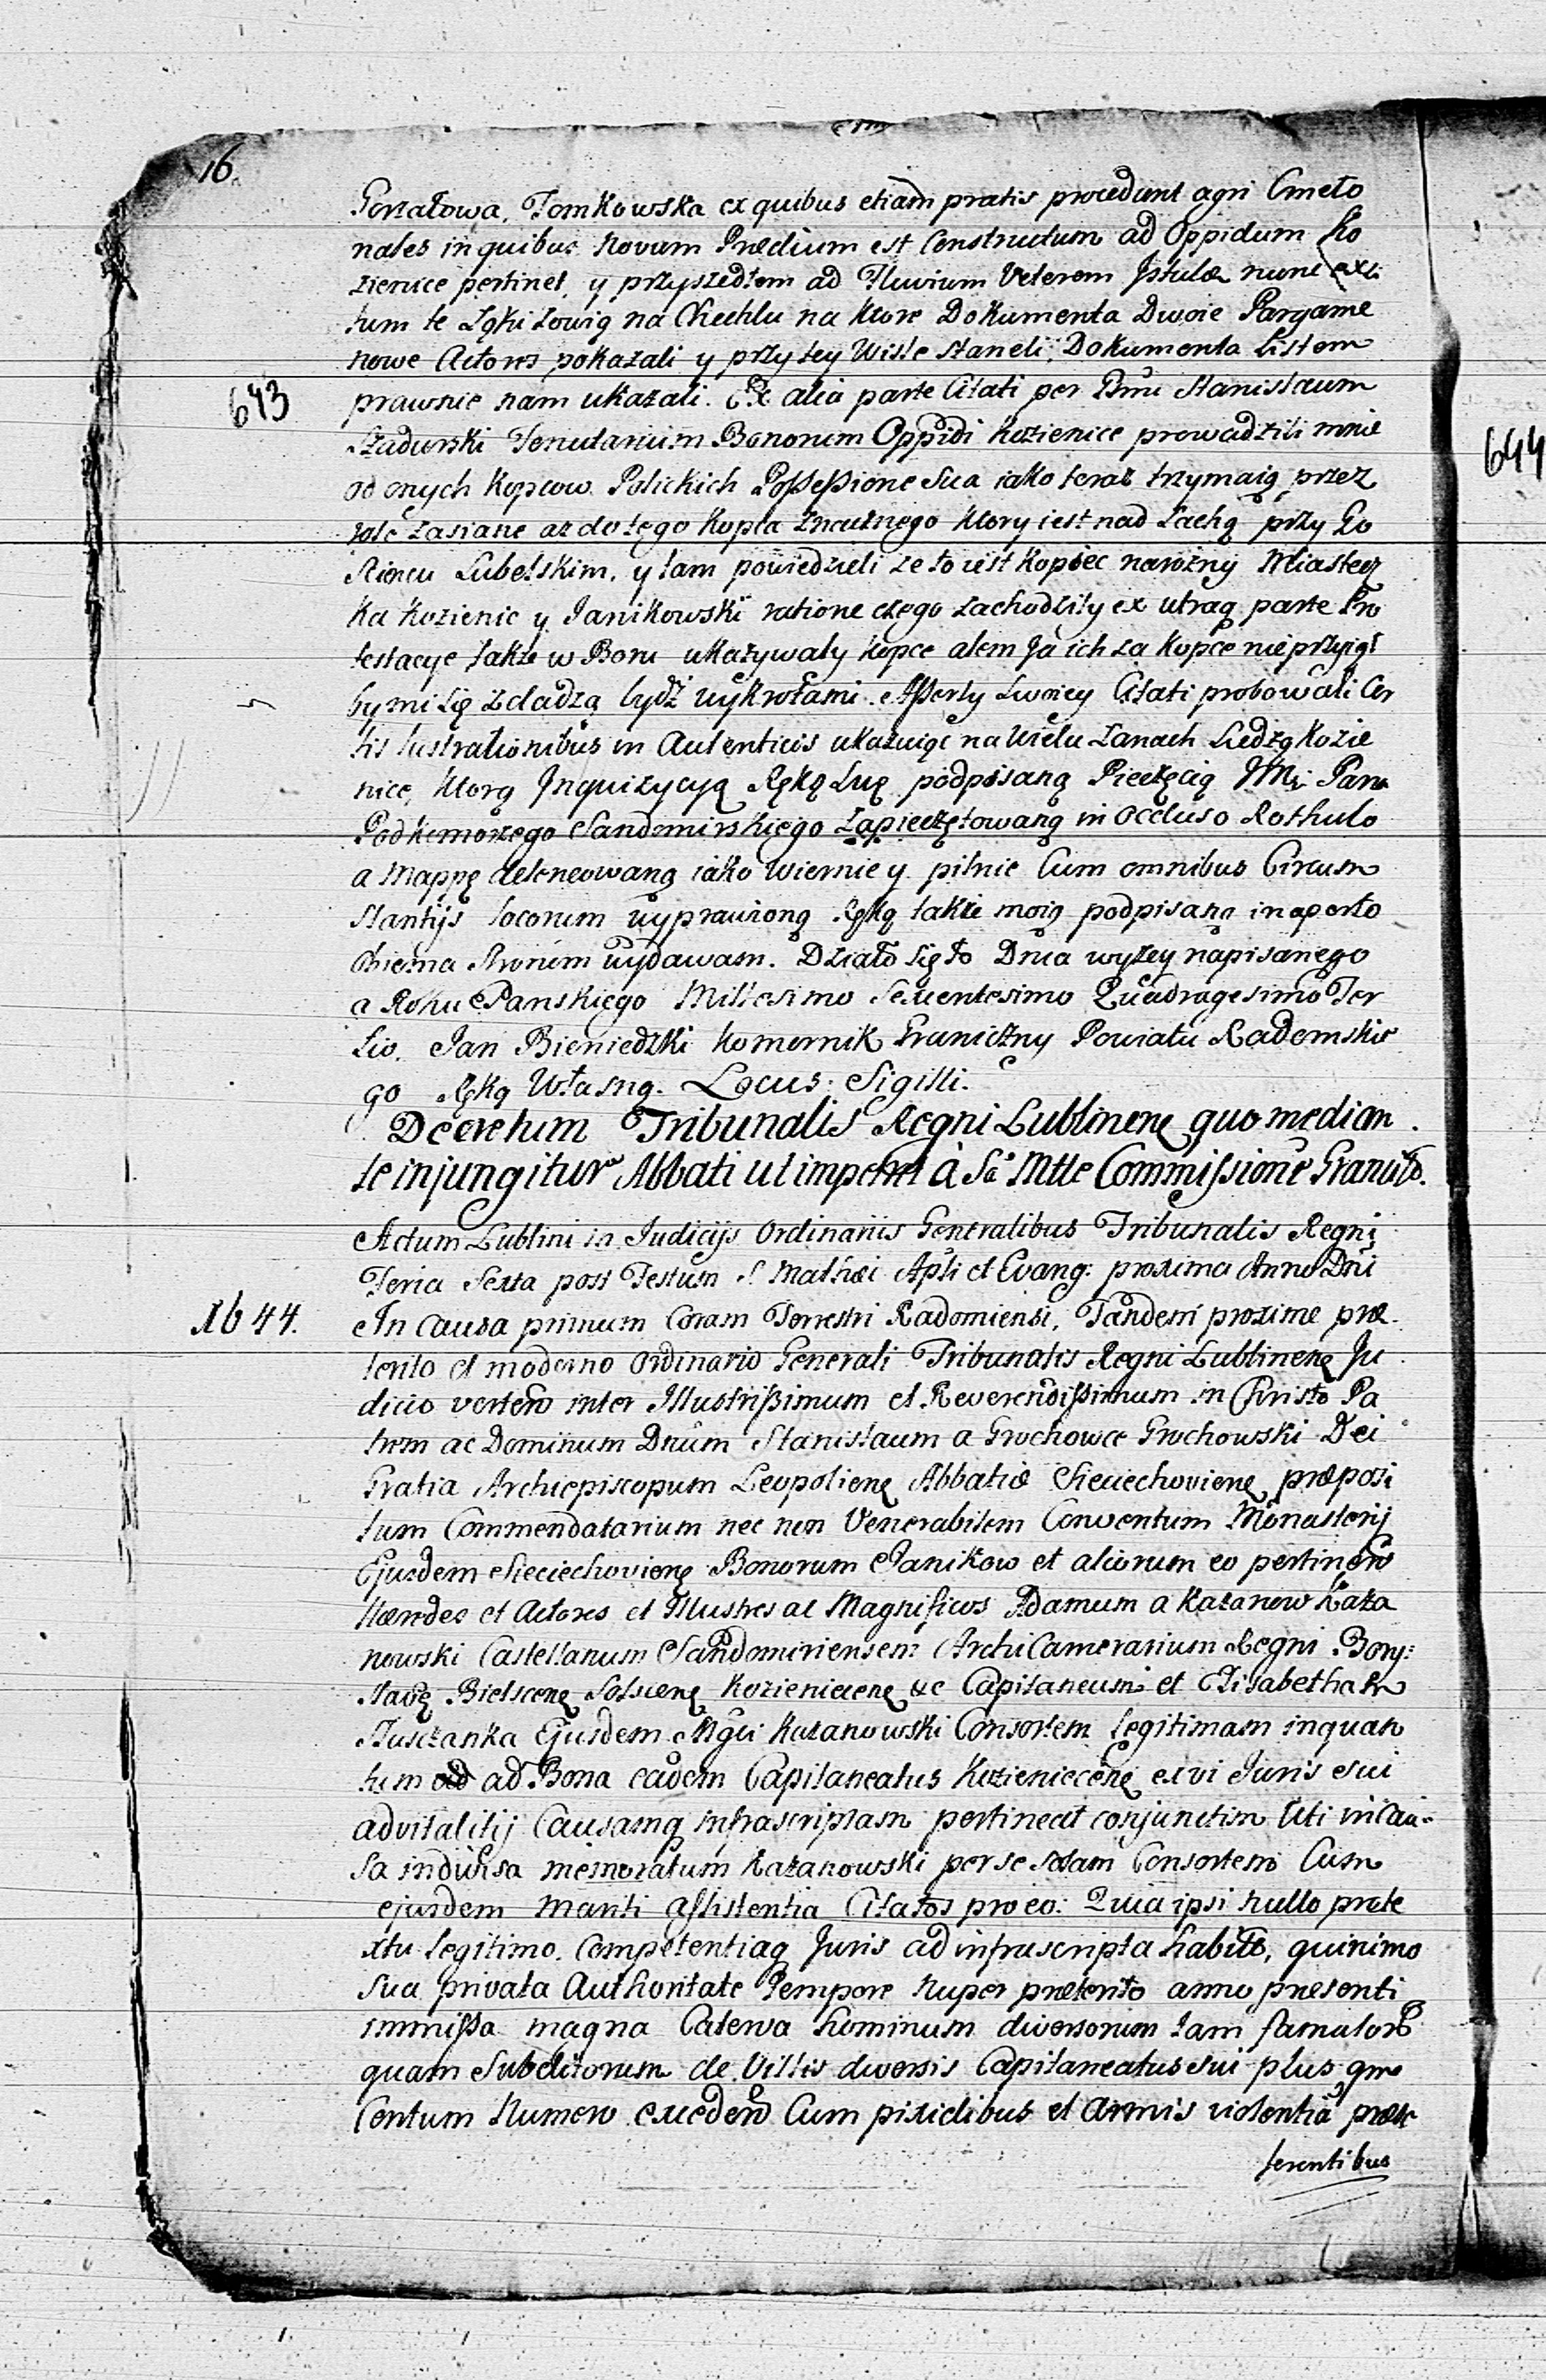 16.
Gorzałowa, Tomkowska ex quibus etiam pratis procedunt agri Cmeto
nales in quibus Novum Prædium est Constructum ad Oppidum Ko
zienice pertinet, y przyszedłem ad Fluvium Veterem Istulæ nunc
tum te Łąki zowią na Chechlu na ktore Dokumenta Dwoie Pargame
nowe Actores pokazali y przy tey Wisle staneli, Dokumenta Listem
643 prawnie nam ukazali. Ex alia parte Citati per Stanislaum
Szadurski Tenutarium Bonorum Oppidi Kozienice prowadzili mnie
od onych Kopcow Polickich Possessione sua iako teraz trzymaią przez
role zasiane az do tego Kopca który iest nad Łachą przy Go
scincu Lubelskim, y tam powiedzieli ze to iest Kopiec narożny Miastecz
ka Kozienic y Janikowski ratione czego zachodziły ex utraq parte Pro
testacye także w Boru ukazywały kopce alem Ja ich za kopce nie przyiął
bo mi się zdadzą bydź wykrotami. Asserty swoiey Citati probowali Cer
tis lustrationibus in Autenticis ukazuiąc na Wielu Łanach siedzą Kozie
nice, ktorą Inquizycyą Ręką swą podpisaną Pieczęcią JMci Pana
Podkomorzego Sandomirskiego zapieczętowaną in occluso Rothulo
a Mappę delineowaną iako wiernie y pilnie Cum omnibus Circum
stantijs locorum wyprawioną ręką także moią podpisaną in aperto
obiema stronom wydawam. Działo się to Dnia wyżey napisanego
a Roku Pańskiego Millesimo Sexcentesimo Quadragesimo Ter
tio. Jan Bieniedzki Komornik Graniczny Powiatu Radomskie
go Ręką Własną. Locus: Sigilli.
Decretum Tribunalis Regni Lublinene quo median
te injungitur Abbati ut impetret à Sa Mtte Commissione
Actum Lublini in Judicijs Ordinariis Generalibus Tribunalis Regni
Feria Sexta post Festum S. Mathæi Apli et Evang: proxima Anno Dni
1644. In causa primum Coram Terrestri Radomiensi, Tandem proxime præ
terito et moderno Ordinario Generali Tribunalis Regni Lublinene Ju
dicio verten inter Illustrissimum et Reverendissimum in Christo Pa
trem ac Dominum Dnum Stanislaum a Grochowce Grochowski Dei
Gratia Archiepiscopum Leopoliene Abbatiæ Sieciechoviene præposi
tum Commendatarium nec non Venerabilem Conventum Monasterij
Ejusdem Sieciechoviene Bonorum Janikow et aliorum eo pertinen
Hæredes et Actores et Illustres ac Magnificos Adamum a Kazanow Kaza
nowski Castellanum Sandomiriensem ArchiCamerarium Regni Bory:
Kozieniciene &c Capitaneum et Elisabetham
Słuszanka Ejusdem Mgci Kazanowski Consortem legitimam inquan
tum ad ad Bona eadem Capitaneatus Kozieniecene ex vi Juris sui
advitalitij Causamq infrascriptam pertineat conjunctim Uti in Cau-
sa indivisa memoratum Kazanowski per se solam Consortem Cum
ejusdem Mariti assistentia Citatos pro eo: Quia ipsi nullo præte
xtu legitimo. Competentiaq Juris ad infrascripta habito, quinimo
Sua privata Authoritate Tempore nuper præterito anno præsenti
immissa magna Caterva hominum diversorum tam famulor
quam Subditorum de Villis diversis Capitaneatus sui plus qm
Centum Numero exceden Cum pixidibus et armis violentia præse
ferentibus
644